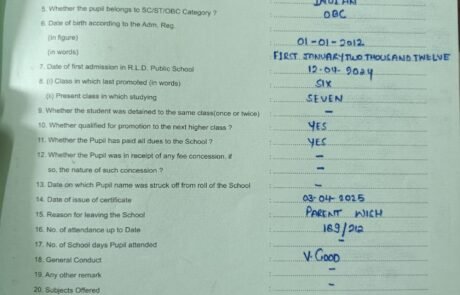 INDIAN
5. Whether the pupil belongs to SC/ST/OBC Category ? : OBC
6. Date of birth according to the Adm. Reg.
(in figure) : 01-01-2012
(in words) : FIRST JANUARY TWO THOUSAND TWELVE
7. Date of first admission in R.L.D. Public School : 12-04-2024
8. (i) Class in which last promoted (in words) : SIX
(ii) Present class in which studying : SEVEN
9. Whether the student was detained to the same class(once or twice) : –
10. Whether qualified for promotion to the next higher class ? : YES
11. Whether the Pupil has paid all dues to the School ? : YES
12. Whether the Pupil was in receipt of any fee concession, if : –
so, the nature of such concession ? : –
13. Date on which Pupil name was struck off from roll of the School : –
14. Date of issue of certificate : 03-04-2025
15. Reason for leaving the School : PARENT WISH
16. No. of attendance up to Date : 189/212
17. No. of School days Pupil attended : –
18. General Conduct : V. GOOD
19. Any other remark : –
20. Subjects Offered : –